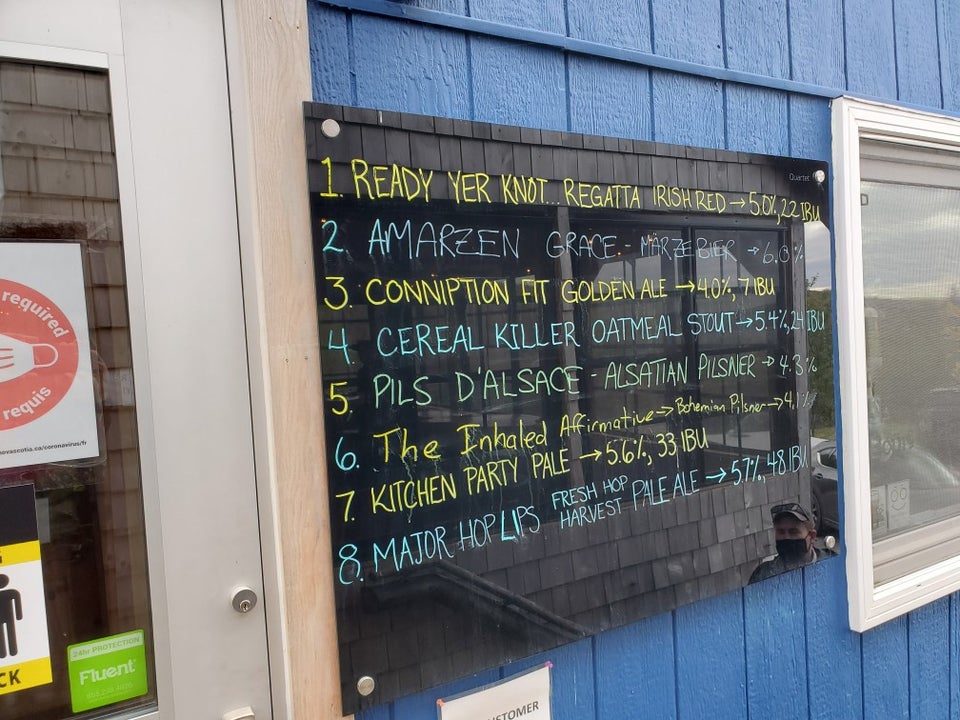 Quartet
1. READY YER KNOT... REGATTA IRISH RED → 5.0%, 22 IBU
2. AMARZEN GRACE - MÄRZEBIER → 6.0%
3. CONNIPTION FIT GOLDEN ALE → 4.0%, 7 IBU
4. CEREAL KILLER OATMEAL STOUT → 5.4%, 24 IBU
5. PILS D'ALSACE - ALSATIAN PILSNER → 4.3%
6. The Inhaled Affirmative → Bohemian Pilsner → 4.1%
7. KITCHEN PARTY PALE → 5.6%, 33 IBU
8. MAJOR HOP LIPS FRESH HOP HARVEST PALE ALE → 5.7%, 48 IBU
required
requis
novascotia.ca/coronavirus/fr
CK
24hr PROTECTION
Fluent
CUSTOMER